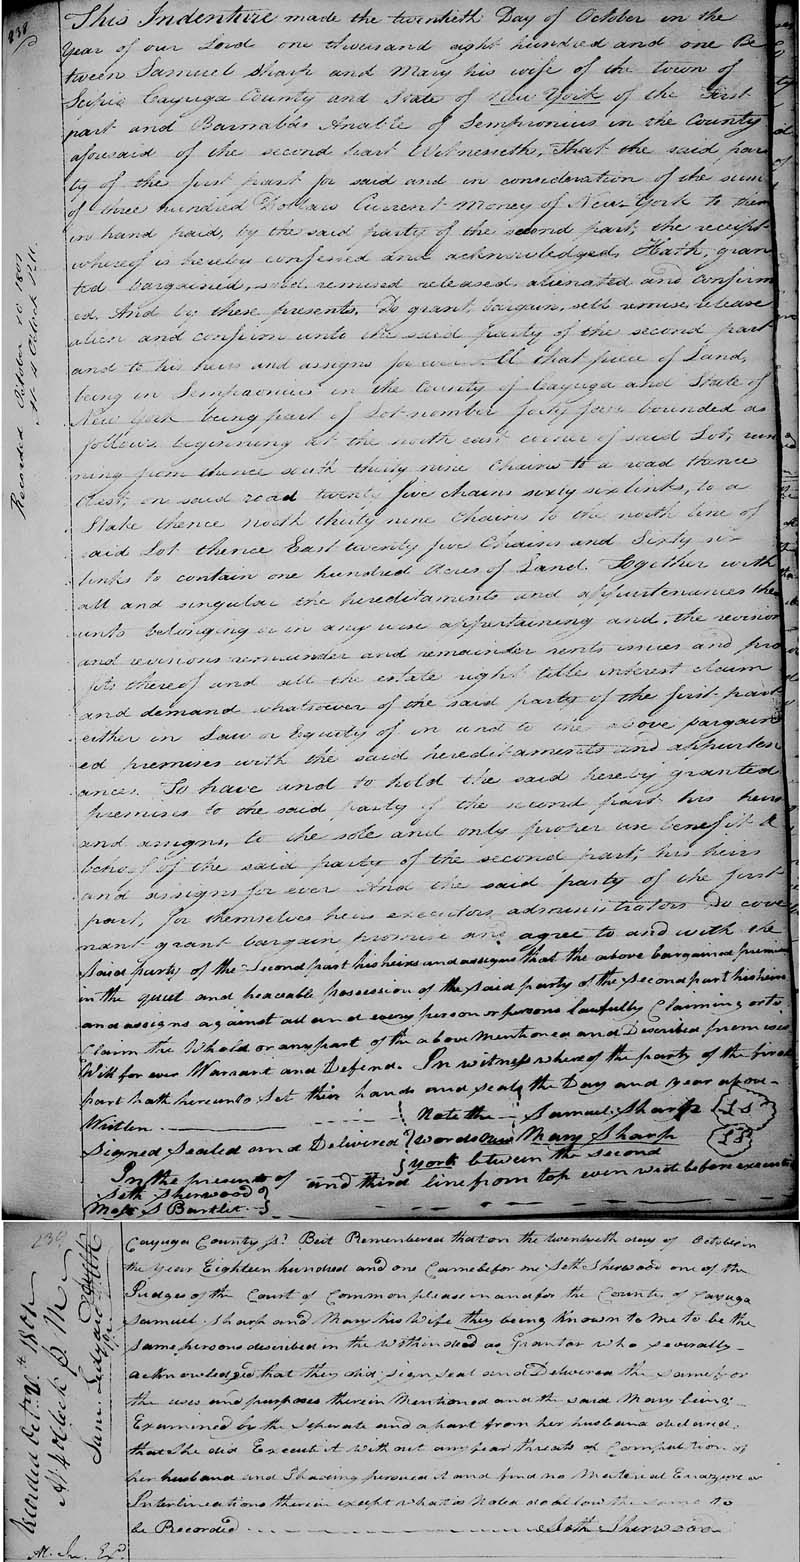 238
Recorded October 20 1801
At 4 Oclock P.M.
This Indenture made the twentieth Day of October in the
Year of our Lord one thousand eight hundred and one Be
tween Samuel Sharp and Mary his wife of the town of
Scipio Cayuga County and State of New York of the First
part and Barnabas Anable of Sempronius in the County
aforesaid of the second part Witnesseth, That the said par
ty of the first part for said and in consideration of the sum
of three hundred Dollars Current Money of New-York to them
in hand paid, by the said party of the second part, the receipt
whereof is hereby confessed and acknowledged, Hath, gran
ted bargained, sold remised released, alienated and confirm
ed, And by these presents, Do grant, bargain, sell remise, release
alien and confirm unto the said party of the second part
and to his heirs and assigns forever All that piece of Land,
being in Sempronius in the County of Cayuga and State of
New York being part of Lot number forty bounded as
follows beginning at the north east corner of said Lot, run
ning from thence south thirty nine Chains to a road thence
West, on said road twenty five chains sixty six links, to a
Stake thence north thirty nine Chains to the north line of
said Lot thence East twenty five Chains and Sixty six
links to contain one hundred Acres of Land. Together with
all and singular the hereditaments and appurtenances there
unto belonging or in any wise appertaining and, the revision
and revisions remainder and remainder rents issues and pro
fits thereof and all the estate right title interest claim
and demand whatsoever of the said party of the first part
either in Law or Equity of in and to the above bargain
ed premises with the said hereditaments and appurten
ances. To have and to hold the said hereby granted
premises to the said party of the second part his heirs
and assigns, to the sole and only proper use benefit &
behoof of the said party of the second part, his heirs
and assigns for ever And the said party of the first
part, for themselves heirs executors administrators Do cove
nant grant bargain promise and agree to and with the
Said party of the Second part his heirs and assigns that the above bargained premises
in the quiet and peaceable possession of the said party of the Second part his heirs
and assigns against all and every person or persons lawfully Claiming or to
Claim the Whole or any part of the above Mentioned and Described premises
Will for ever Warrant and Defend. In witness whereof the party of the first
part hath hereunto Set their hands and seals the Day and year above-
Written.
Note the Samuel Sharp LS
Signed Sealed and Delivered words New Mary Sharp LS
york between the second
In the presents of and third line from top even wrote before executed
Seth Sherwood
Bartlet
239
Recorded Octr. 20th 1801
At 4 oClock P.M.
Cayuga County Ss. Beit Remembered that on the twentieth day of October in
the year Eighteen hundred and one Came before me Seth Sherwood one of the
Judges of the Court of Common pleas in and for the County of Cayuga
Samuel Sharp and Mary his Wife they being Known to me to be the
Same persons described in the within deed as Grantor who severally
acknowledged that they did sign seal and Delivered the same for
the uses and purposes therein Mentioned and the said Mary being
Examined by the Seperate and apart from her husband declared,
that She did Execute it without any fear threats or Compultion of
her husband and I having perused it and find no Material Erazure or
Interlineations therein except what is Noted do allow the same to
be Recorded Seth Sherwood